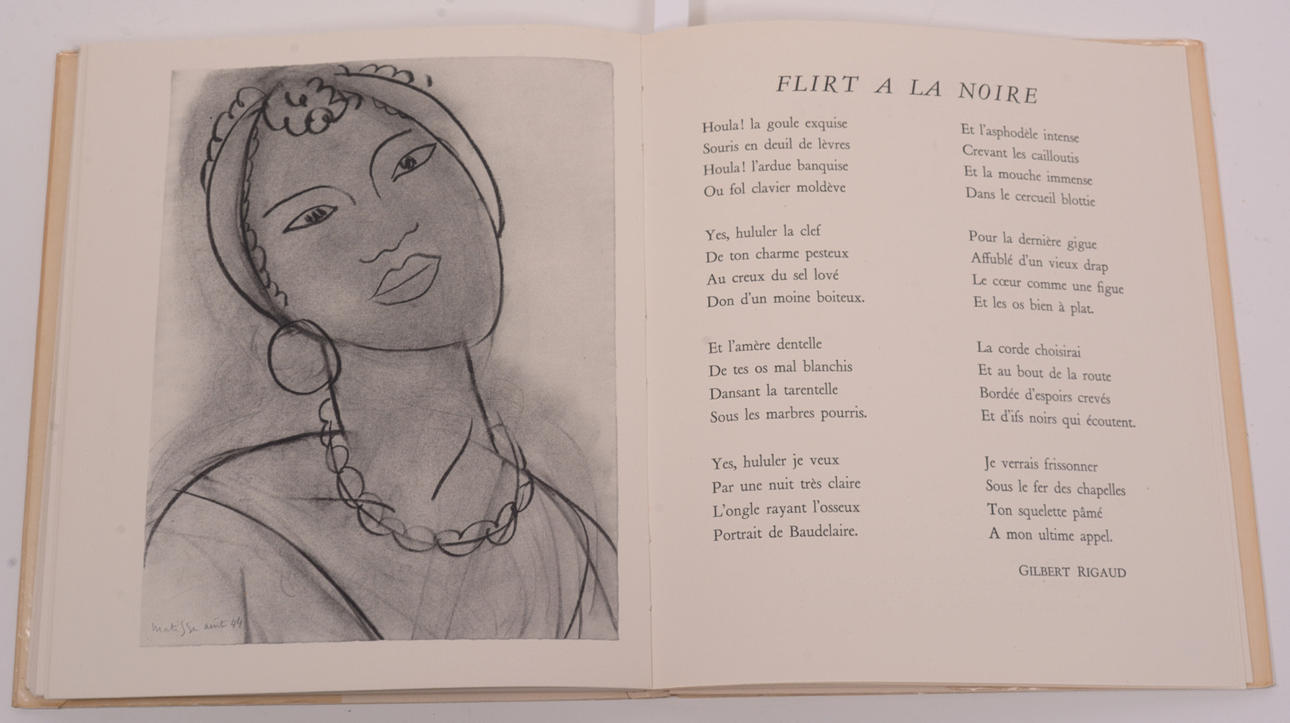 Matisse août 44
FLIRT A LA NOIRE
Houla! la goule exquise
Souris en deuil de lèvres
Houla! l'ardue banquise
Ou fol clavier moldève
Yes, hululer la clef
De ton charme pesteux
Au creux du sel lové
Don d'un moine boiteux.
Et l'amère dentelle
De tes os mal blanchis
Dansant la tarentelle
Sous les marbres pourris.
Yes, hululer je veux
Par une nuit très claire
L'ongle rayant l'osseux
Portrait de Baudelaire.
Et l'asphodèle intense
Crevant les cailloutis
Et la mouche immense
Dans le cercueil blottie
Pour la dernière gigue
Affublé d'un vieux drap
Le cœur comme une figue
Et les os bien à plat.
La corde choisirai
Et au bout de la route
Bordée d'espoirs crevés
Et d'ifs noirs qui écoutent.
Je verrais frissonner
Sous le fer des chapelles
Ton squelette pâmé
A mon ultime appel.
GILBERT RIGAUD